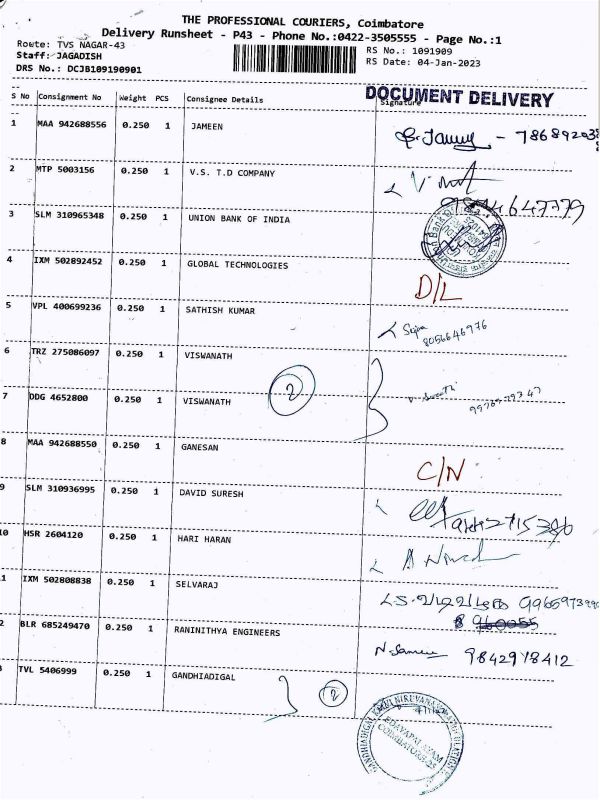 THE PROFESSIONAL COURIERS, Coimbatore
Delivery Runsheet - P43 - Phone No.:0422-3505555 - Page No.:1
Route: TVS NAGAR-43 RS No.: 1091909
Staff: JAGADISH RS Date: 04-Jan-2023
DRS No.: DCJB109190901
DOCUMENT DELIVERY
S No Consignment No Weight PCS Consignee Details Signature
1 MAA 942688556 0.250 1 JAMEEN
2 MTP 5003156 0.250 1 V.S. T.D COMPANY
3 SLM 310965348 0.250 1 UNION BANK OF INDIA
4 IXM 502892452 0.250 1 GLOBAL TECHNOLOGIES D/L
5 VPL 400699236 0.250 1 SATHISH KUMAR 8056646976
6 TRZ 275086097 0.250 1 VISWANATH
2
7 DDG 4652800 0.250 1 VISWANATH
8 MAA 942688550 0.250 1 GANESAN C/N
9 SLM 310936995 0.250 1 DAVID SURESH
10 HSR 2604120 0.250 1 HARI HARAN
1 IXM 502808838 0.250 1 SELVARAJ
2 BLR 685249470 0.250 1 RANINITHYA ENGINEERS 9842918412
3 TVL 5406999 0.250 1 GANDHIADIGAL 2